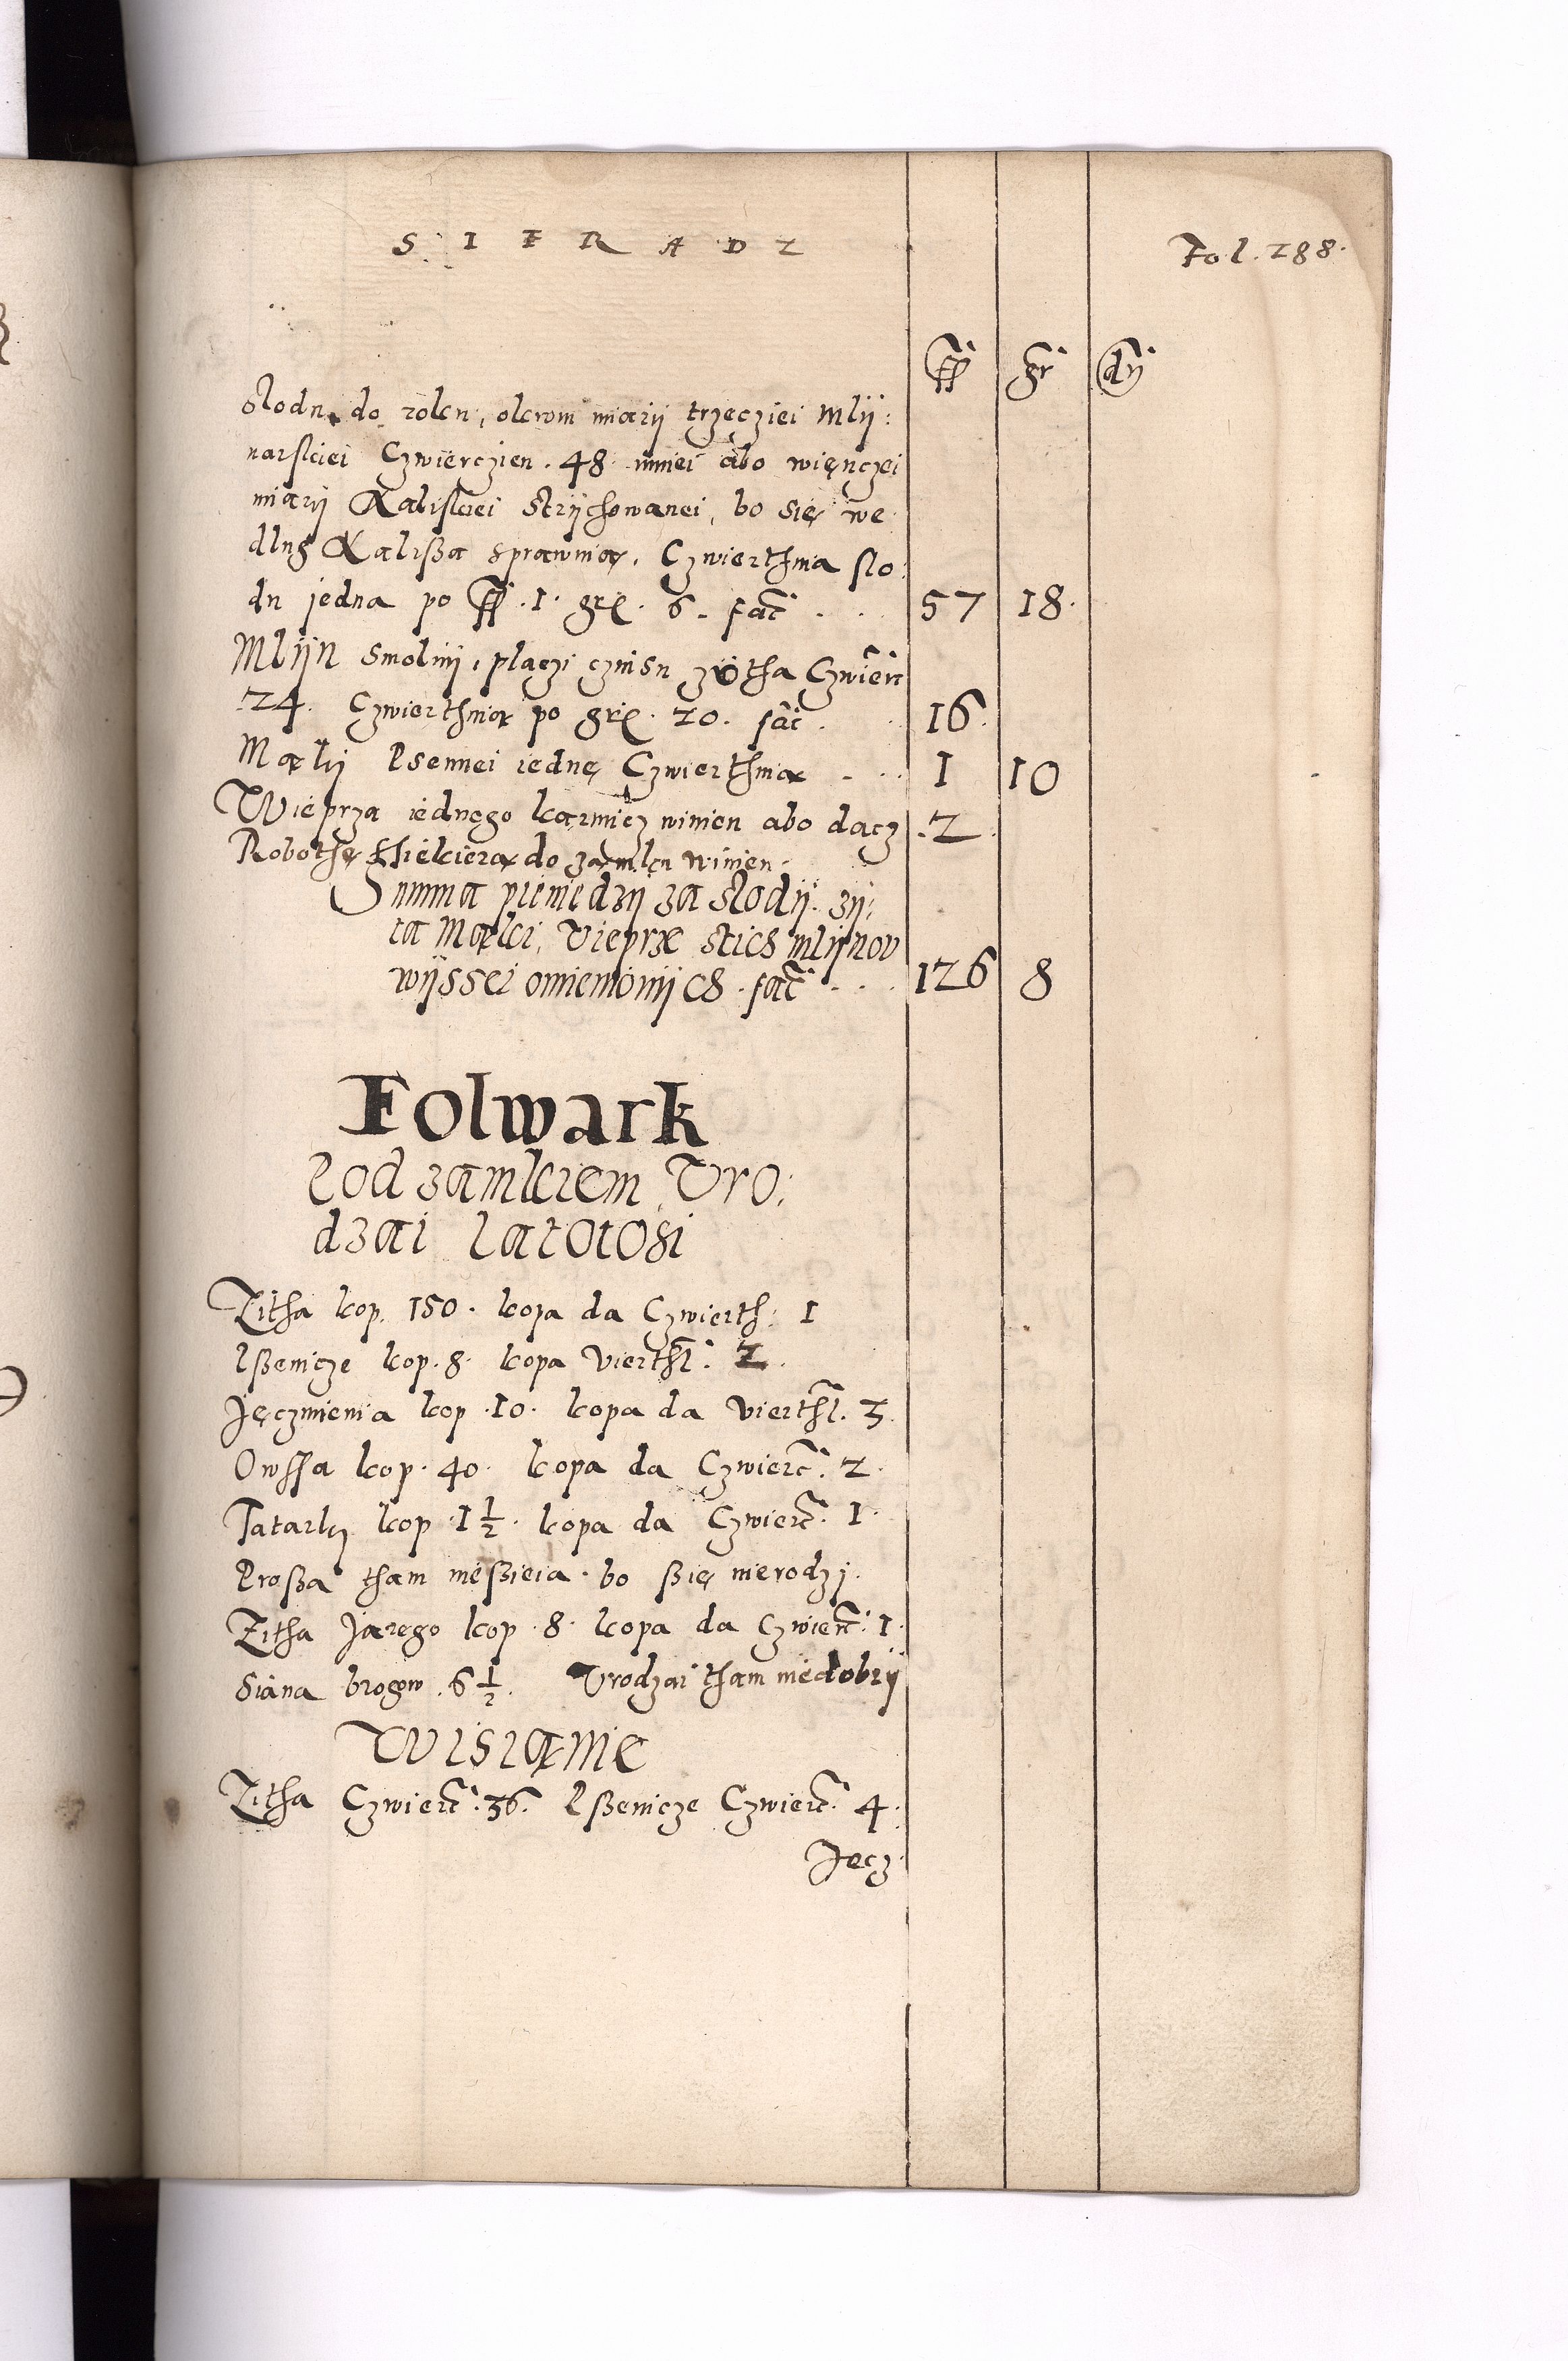 SIERADZ
Fol. 288.
ff gr dń
Słodu do rolcu, olcrom miarÿ trzęcziei Mlÿ:
narskiei Czwierczien. 48. mniei abo więnczei
miarÿ Kaliskiei Strÿchowanei, bo się we
dlug Kalißa sprawuią. Czwierthnia slo:
du jedna po ff. 1. grę. 6. fac̃ . . . 57 18.
Mlÿn Smolnÿ, placzi czinsu zÿtha Czwierc
24. Czwierthnią po grę. 20. fac̃ . . 16.
Mąkÿ Psennei iednę Czwierthnią - . . 1 10
Wieprza iednego karmicz winien abo dacz .2.
Robothę thiekierą do zamku winien.
Summa pieniedzÿ za słodÿ. zÿ:
ta Mąki, Vieprze stich mlÿnov
wÿssei omienionÿch. fac̃ . . . 126 8
Folwark
Pod zamkiem, Vro:
dzai latotosi
Zitha kop. 150. kopa da Czwierth: 1
Pßenicze kop. 8. kopa Vierthl: 2.
Jęczmienia kop. 10. kopa da vierthl. 3.
Owssa kop. 40. kopa da Czwierc̃. 2.
Tatarky kop. 1 1/2. kopa da Czwierc̃. 1.
Proßa tham nießieia. bo ßię nierodzj.
Zitha Jarego kop. 8. kopa da Czwierc̃. 1.
Siana brogow. 6 1/2. Vrodzai tham niedobrÿ
Wisianie
Zitha Czwierc̃. 36. Pßenicze Czwierc̃. 4.
Jęcz.